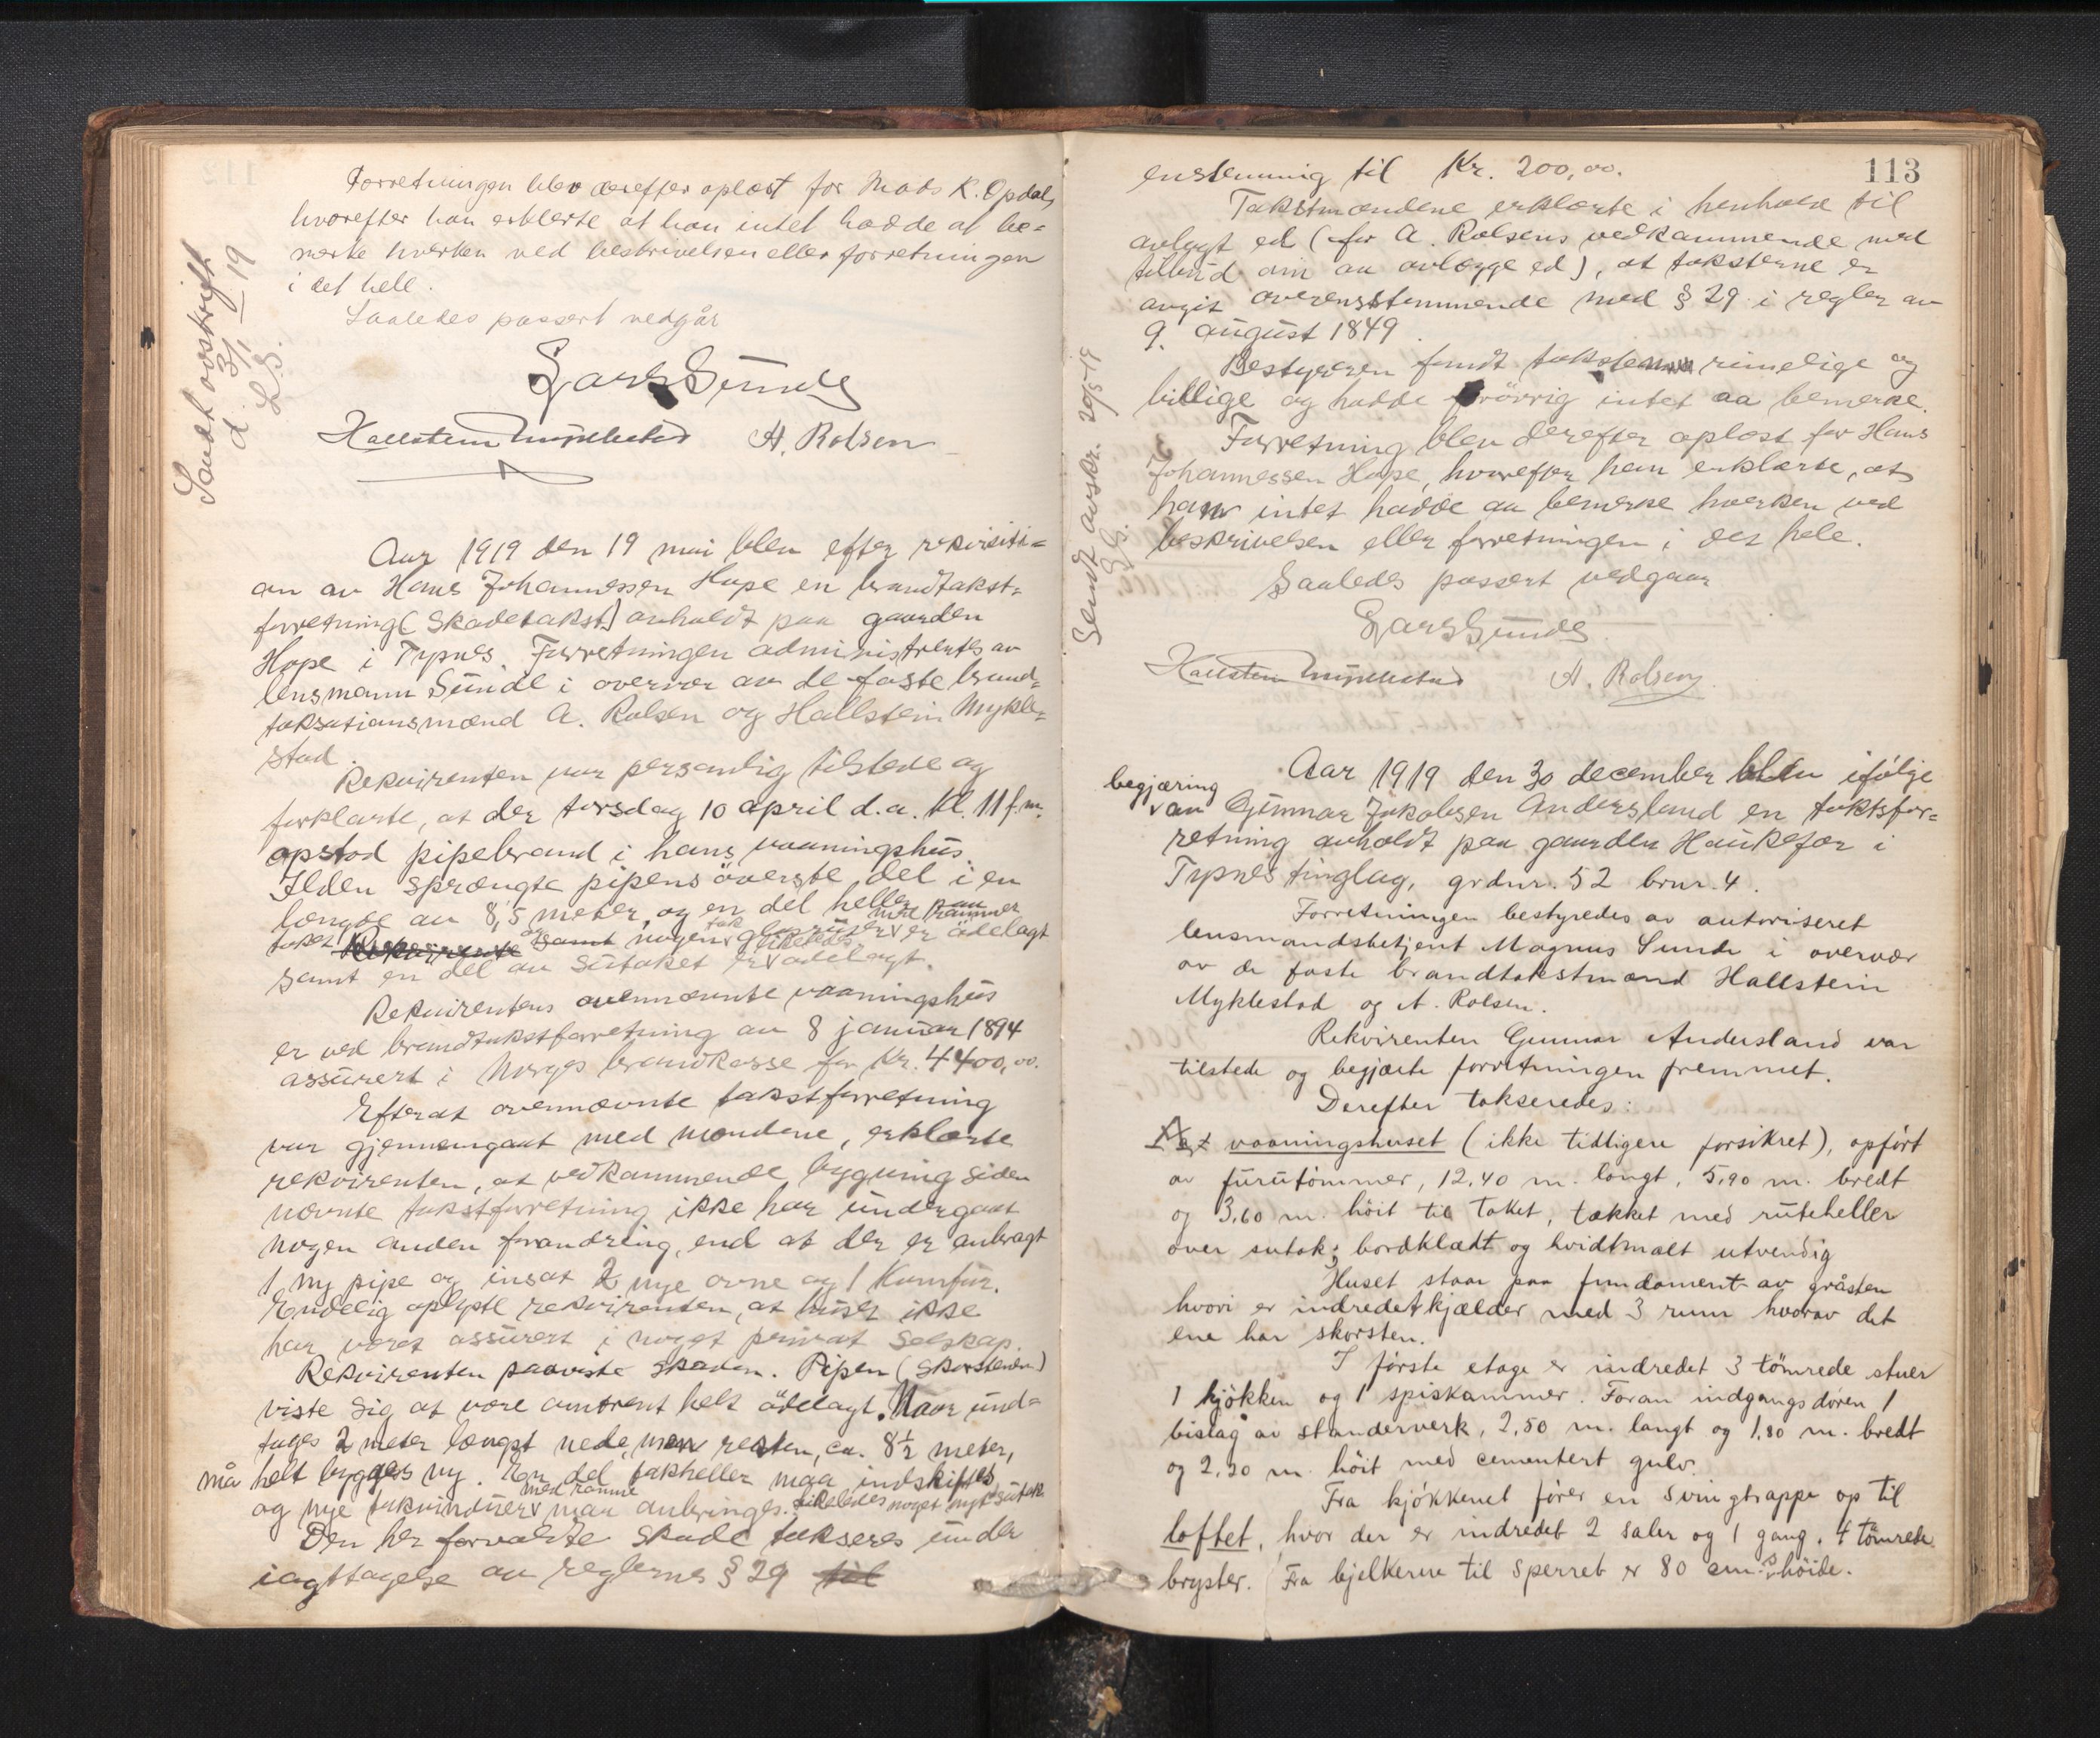 Forretningen blev derefter oplæst for Mads K. Opdal,
hvorefter han erklerte at han intet hadde at be=
merke hverken ved beskrivelsen eller forretningen
i det hele.
Saaledes passert vedgår
Lars Sunde
Hallstein Myklestad A. Rolsen
Sendt avskrift
d. 3/1 19
L.S.
Aar 1919 den 19 mai blev efter rekvisiti=
on av Hans Johannessen Hope en brandtakst=
forretning (skadetakst) avholdt paa gaarden
Hope i Tysnes. Forretningen administrertes av
lensmann Sunde i overvær av de faste brand=
taksationsmænd A. Rolsen og Hallstein Mykle=
stad.
Rekvirenten var personlig tilstede og
forklarte, at der torsdag 10 april d.a. kl. 11 f.m.
opstod pipebrand i hans vaaningshus.
Ilden sprængte pipens överste del i en
længde av 8,5 meter, og en del heller paa
taket Rekvirente og samt nogen tak glasruter med rammer er ödelagt
samt en del av sutaket er likeledes ödelagt.
Rekvirentens ovennævnte vaaningshus
er ved brandtakstforretning av 8 januar 1894
assurert i Norges brandkasse for Kr. 4400,00.
Efterat ovennævnte takstforretning
var gjennemgaat med mændene, erklærte
rekvirenten, at vedkommende bygning siden
nævnte takstforretning ikke har undergaat
nogen anden forandring, end at der er anbragt
1 ny pipe og insat 2 nye ovne og 1 Komfur.
Endelig oplyste rekvirenten, at huset ikke
har været assurert i noget privat selskap.
Rekvirenten paaviste skaden. Pipen (skorstenen)
viste sig at være omtrent helt ödelagt. Naar und=
tages 2 meter længst nede, men resten, ca. 8½ meter,
må helt bygges ny. En del takheller maa indskiftes
og nye takvinduer med ramme maa anbringes. Likeledes noget nyt sutak
Den her forvoldte skade takseres under
iagttagelse av reglernes § 29 til
113
enstemmig til Kr. 200,00.
Takstmændene erklærte i henhold til
avlagt ed (for A. Rolsens vedkommende med
tilbud om aa avlægge ed), at taksterne er
avgit overensstemmende med § 29 i regler av
9. august 1849.
Bestyreren fandt taksterne rimelige og
billige og hadde forövrig intet aa bemerke.
Forretning blev derefter oplæst for Hans
Johannessen Hope, hvorefter han erklærte, at
han intet hadde aa bemerke hverken ved
beskrivelsen eller forretningen i det hele.
Saaledes passert vedgaar
Lars Sunde
Hallstein Myklestad A. Rolsen
Sendt avskr. 20/5-19
L.S.
Aar 1919 den 30 december blev ifölge
begjæring
av Gunnar Jakobsen Andersland en takstfor=
retning avholdt paa gaarden Haukefær i
Tysnes tinglag, grdnr. 52 brnr. 4.
Forretningen bestyredes av autoriseret
lensmandsbetjent Magnus Sunde i overvær
av de faste brandtakstmænd Hallstein
Myklestad og A. Rolsen.
Rekvirenten Gunnar Andersland var
tilstede og begjærte forretningen fremmet.
Derefter takseredes:
A vaaningshuset (ikke tidligere forsikret), opført
av furutømmer, 12,40 m. langt, 5,90 m. bredt
og 3,60 m. höit til taket, tækket med ruteheller
over sutak; bordklædt og hvidtmalt utvendig
Huset staar paa fundament av gråsten
hvori er indredet kjælder med 3 rum hvorav det
ene har skorsten.
I første etage er indredet 3 tömrede stuer
1 kjökken og 1 spiskammer. Foran indgangsdören 1
bislag av standerverk, 2,50 m. langt og 1,80 m. bredt
og 2,20 m. höit med cementert gulv.
Fra kjökkenet förer en svingtrappe op til
loftet, hvor der er indredet 2 saler og 1 gang. 4 tömrede
bryster. Fra bjelkerne til sperret er 80 cm.s höide.